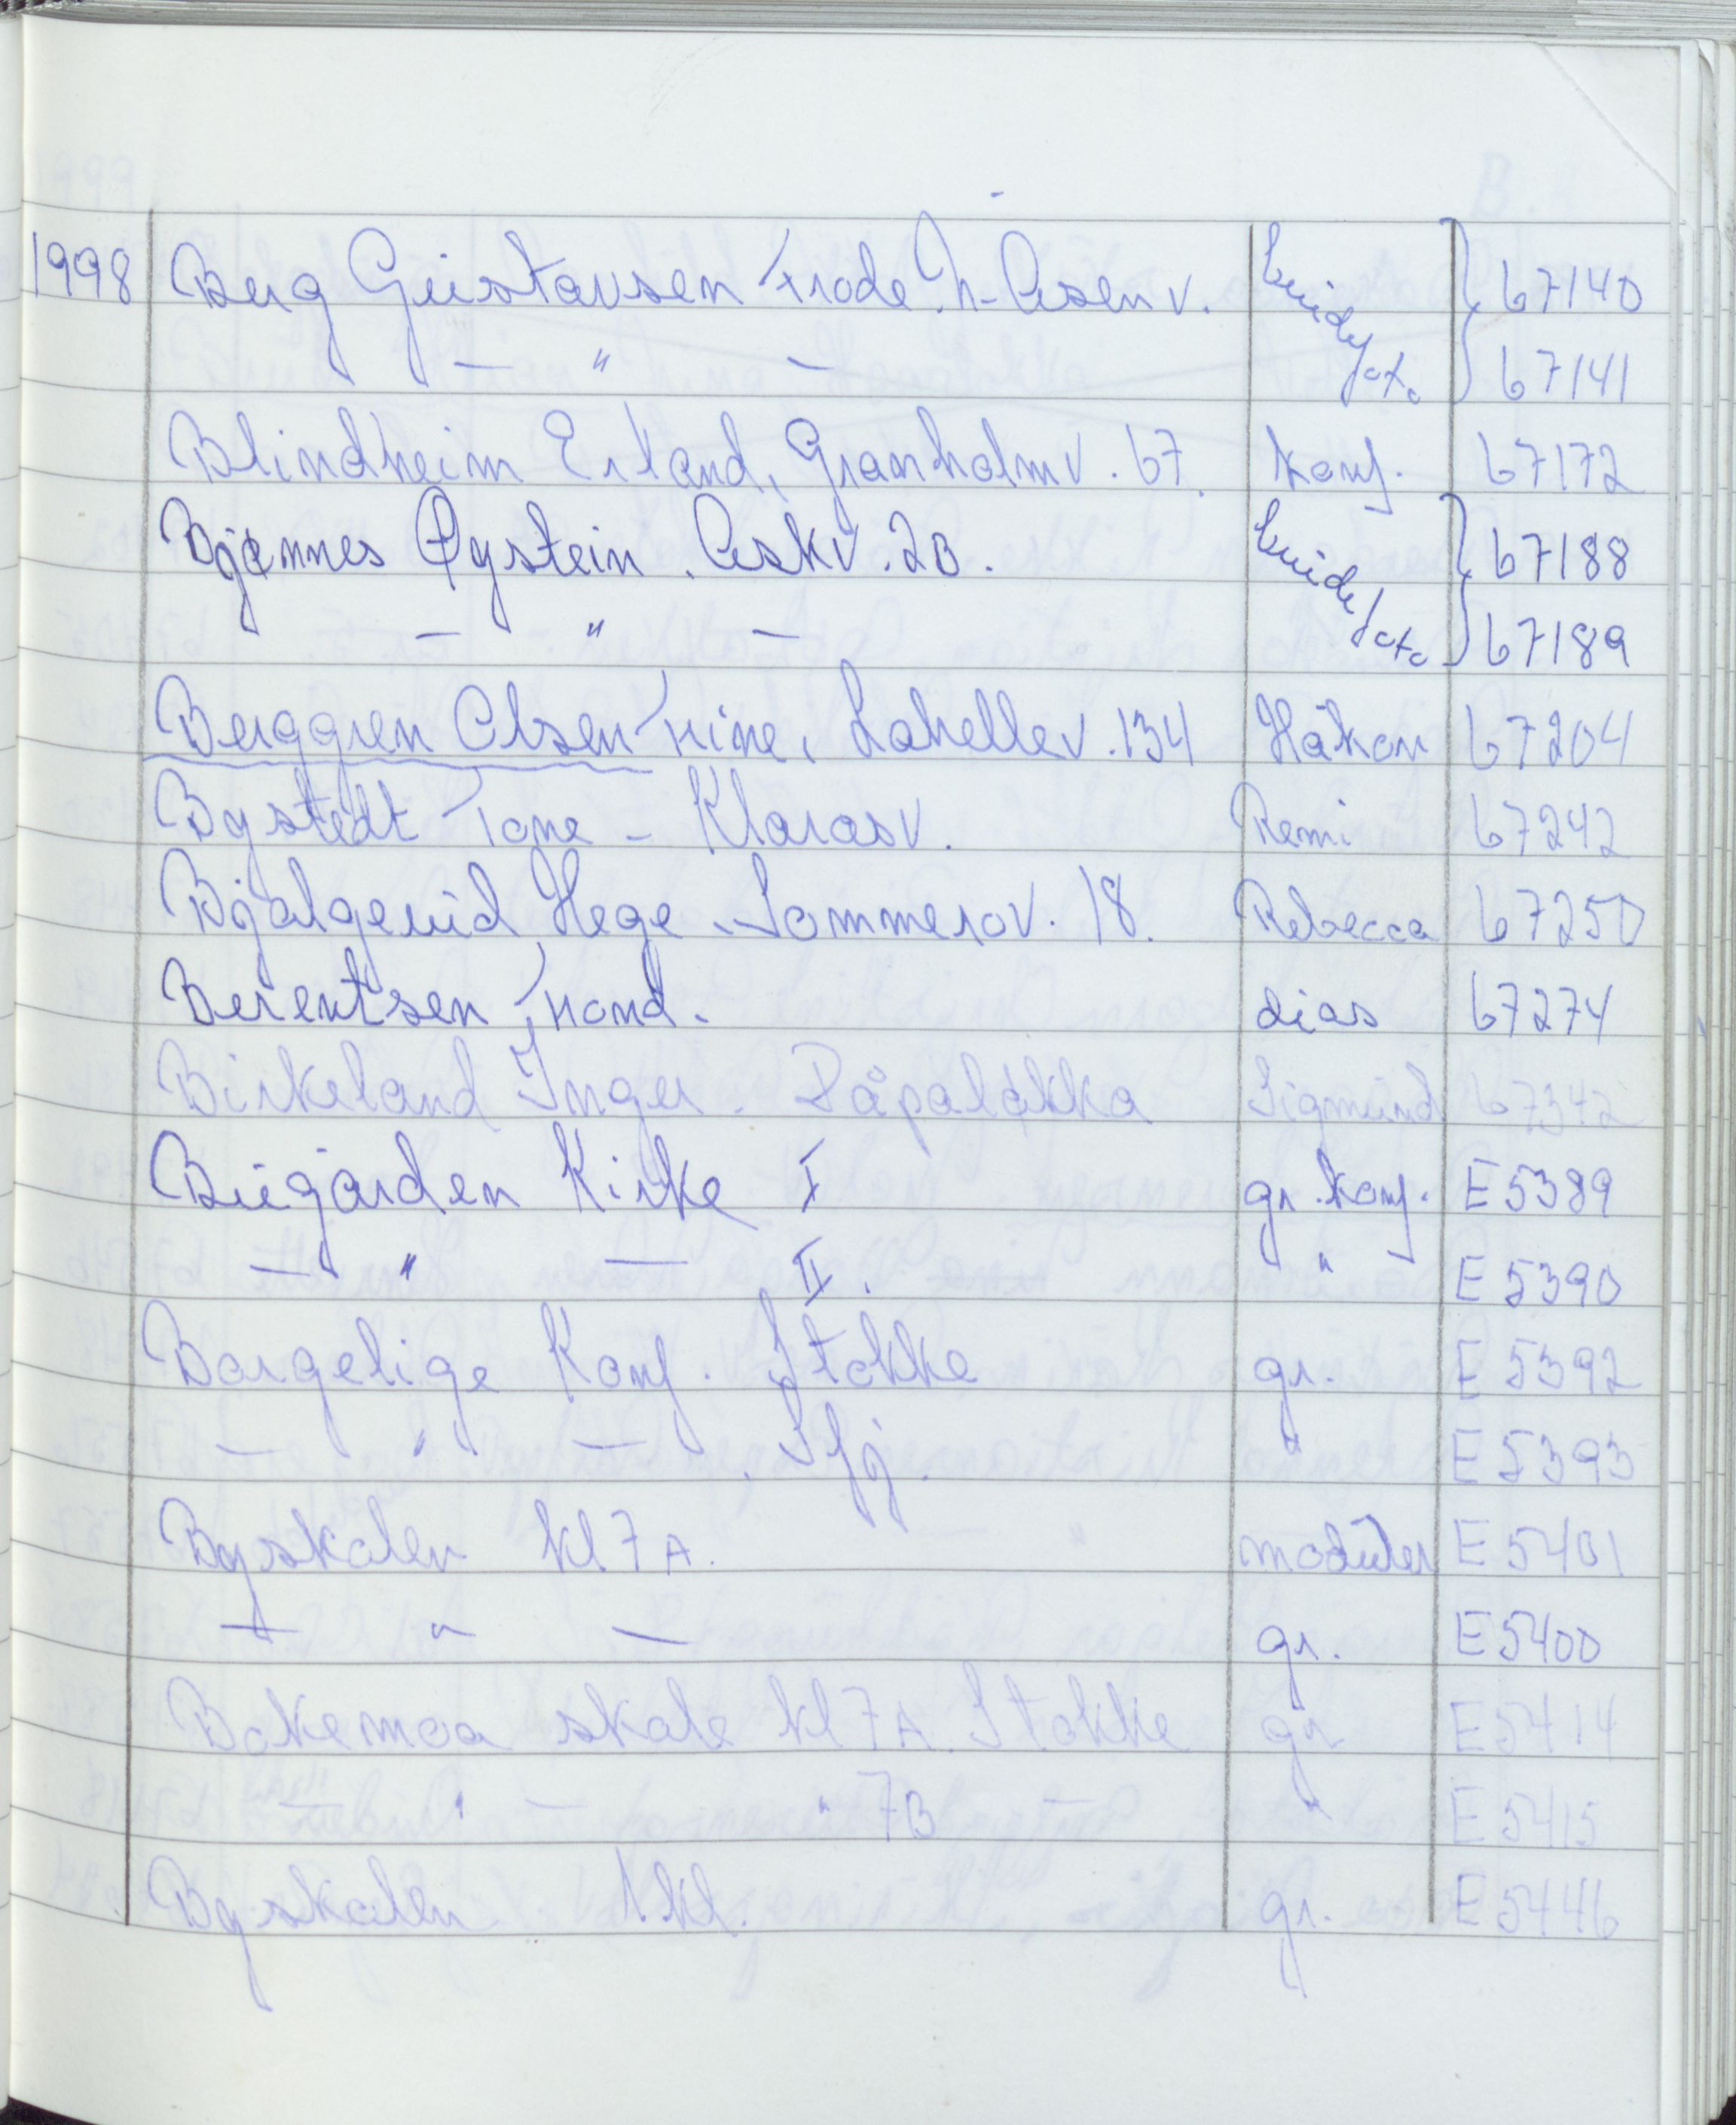 1998 Berg Gustavsen Frode. N-Åsenv. brudefoto 67140
— " — 67141
Blindheim Erland, Granholmv. 67. Konf. 67172
Bjønnes Øystein. Askv. 2B. brudefoto 67188
— " — 67189
Berggren Olsen Trine, Lahellev. 134 Håkon 67204
Bystedt Tone - Klarasv. Remi 67242
Bjålgerud Hege. Sommerov. 18. Rebecca 67250
Berentsen Trond. dias 67274
Birkeland Inger. Råpaløkka Sigmund 67342
Bugården Kirke I gr. konf. E 5389
— " — II. " E 5390
Borgelige Konf. Stokke gr. E 5392
— " — . Sfj. " E 5393
Byskolen kl 7A. moduler E 5401
— " — gr. E 5400
Bokemoa skole kl 7A. Stokke gr E 5414
— " — " 7B — " E 5415
Byskolen 1 kl. gr. E 5446